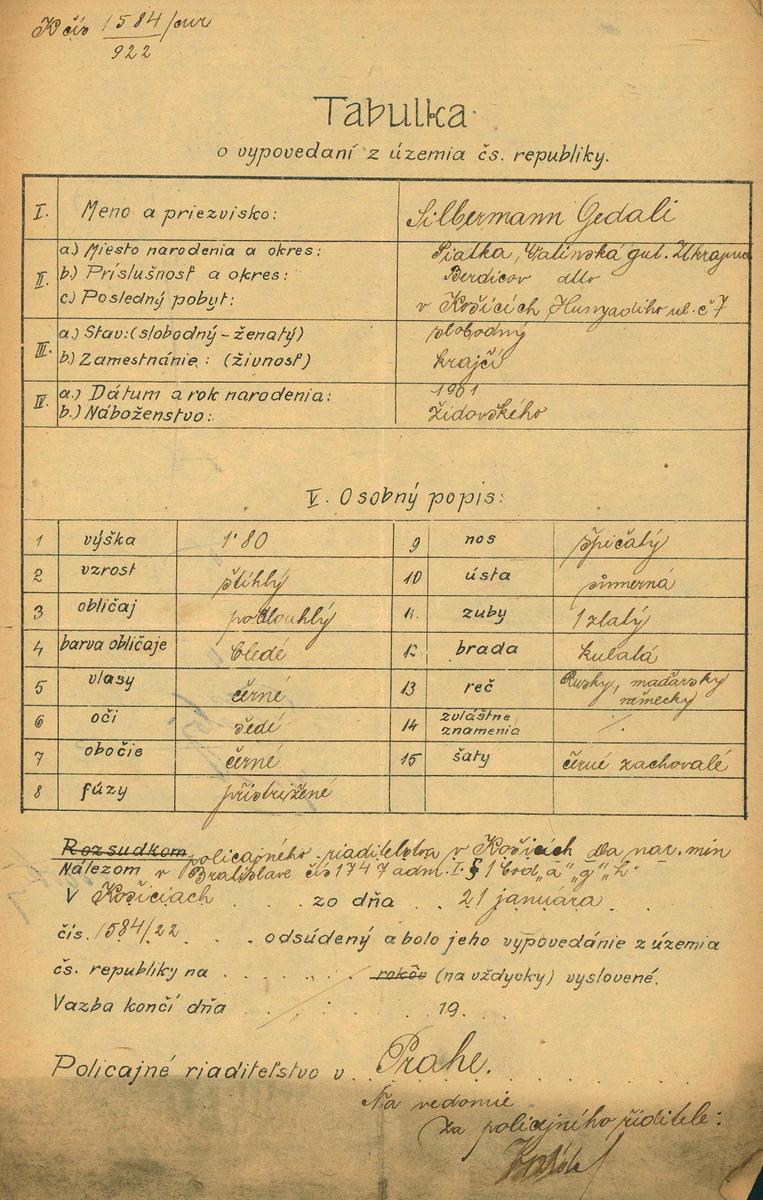 K čís 1584/cur
922
Tabulka
o vypovedaní z územia čs. republiky.
I. Meno a priezvisko: Silbermann Gedali
II. a.) Miesto narodenia a okres: Piatka, Valinská gub. Ukrajina
b.) Príslušnosť a okres: Berdicov dtto
c.) Posledný pobyt: v Košicích Hunyadiho ul. č 7
III. a.) Stav: (slobodný - ženatý) slobodný
b.) Zamestnánie: (živnosť) krajčí
IV. a.) Dátum a rok narodenia: 1901
b.) Náboženstvo: židovského
V. Osobný popis:
1 výška 1'80 9 nos špičatý
2 vzrost štíhlý 10 ústa súmerná
3 obličaj podlouhlý 11. zuby 1 zlatý
4 barva obličaje bledé 12 brada kulatá
5 vlasy černé 13 reč Rusky, maďarsky
německy
6 oči šedé 14 zvláštne znamenia ·/·
7 obočie černé 15 šaty černé zachovalé
8 fúzy přistrižené
Rozsudkom policajného riaditelstva v Košicích na nar. min
Nálezom v Bratislave čís 1747 adm. I. § 1 bod „a" „g" „h"
V Košiciach . . . zo dňa . . 21 januára . .
čís. 1584/22 . . . odsúdený a bolo jeho vypovedánie z územia
čs. republiky na . . . . . . rokôv (na vždycky) vyslovené.
Vazba končí dňa . . . . . 19 . . .
Policajné riaditeľstvo v . . Prahe.
Na vedomie
za policajného řiditele: